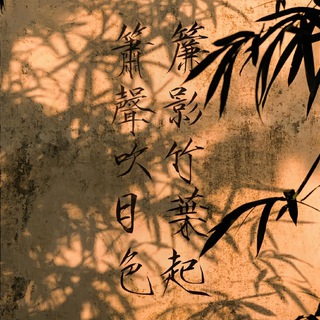 簾影竹葉起
簫聲吹日色